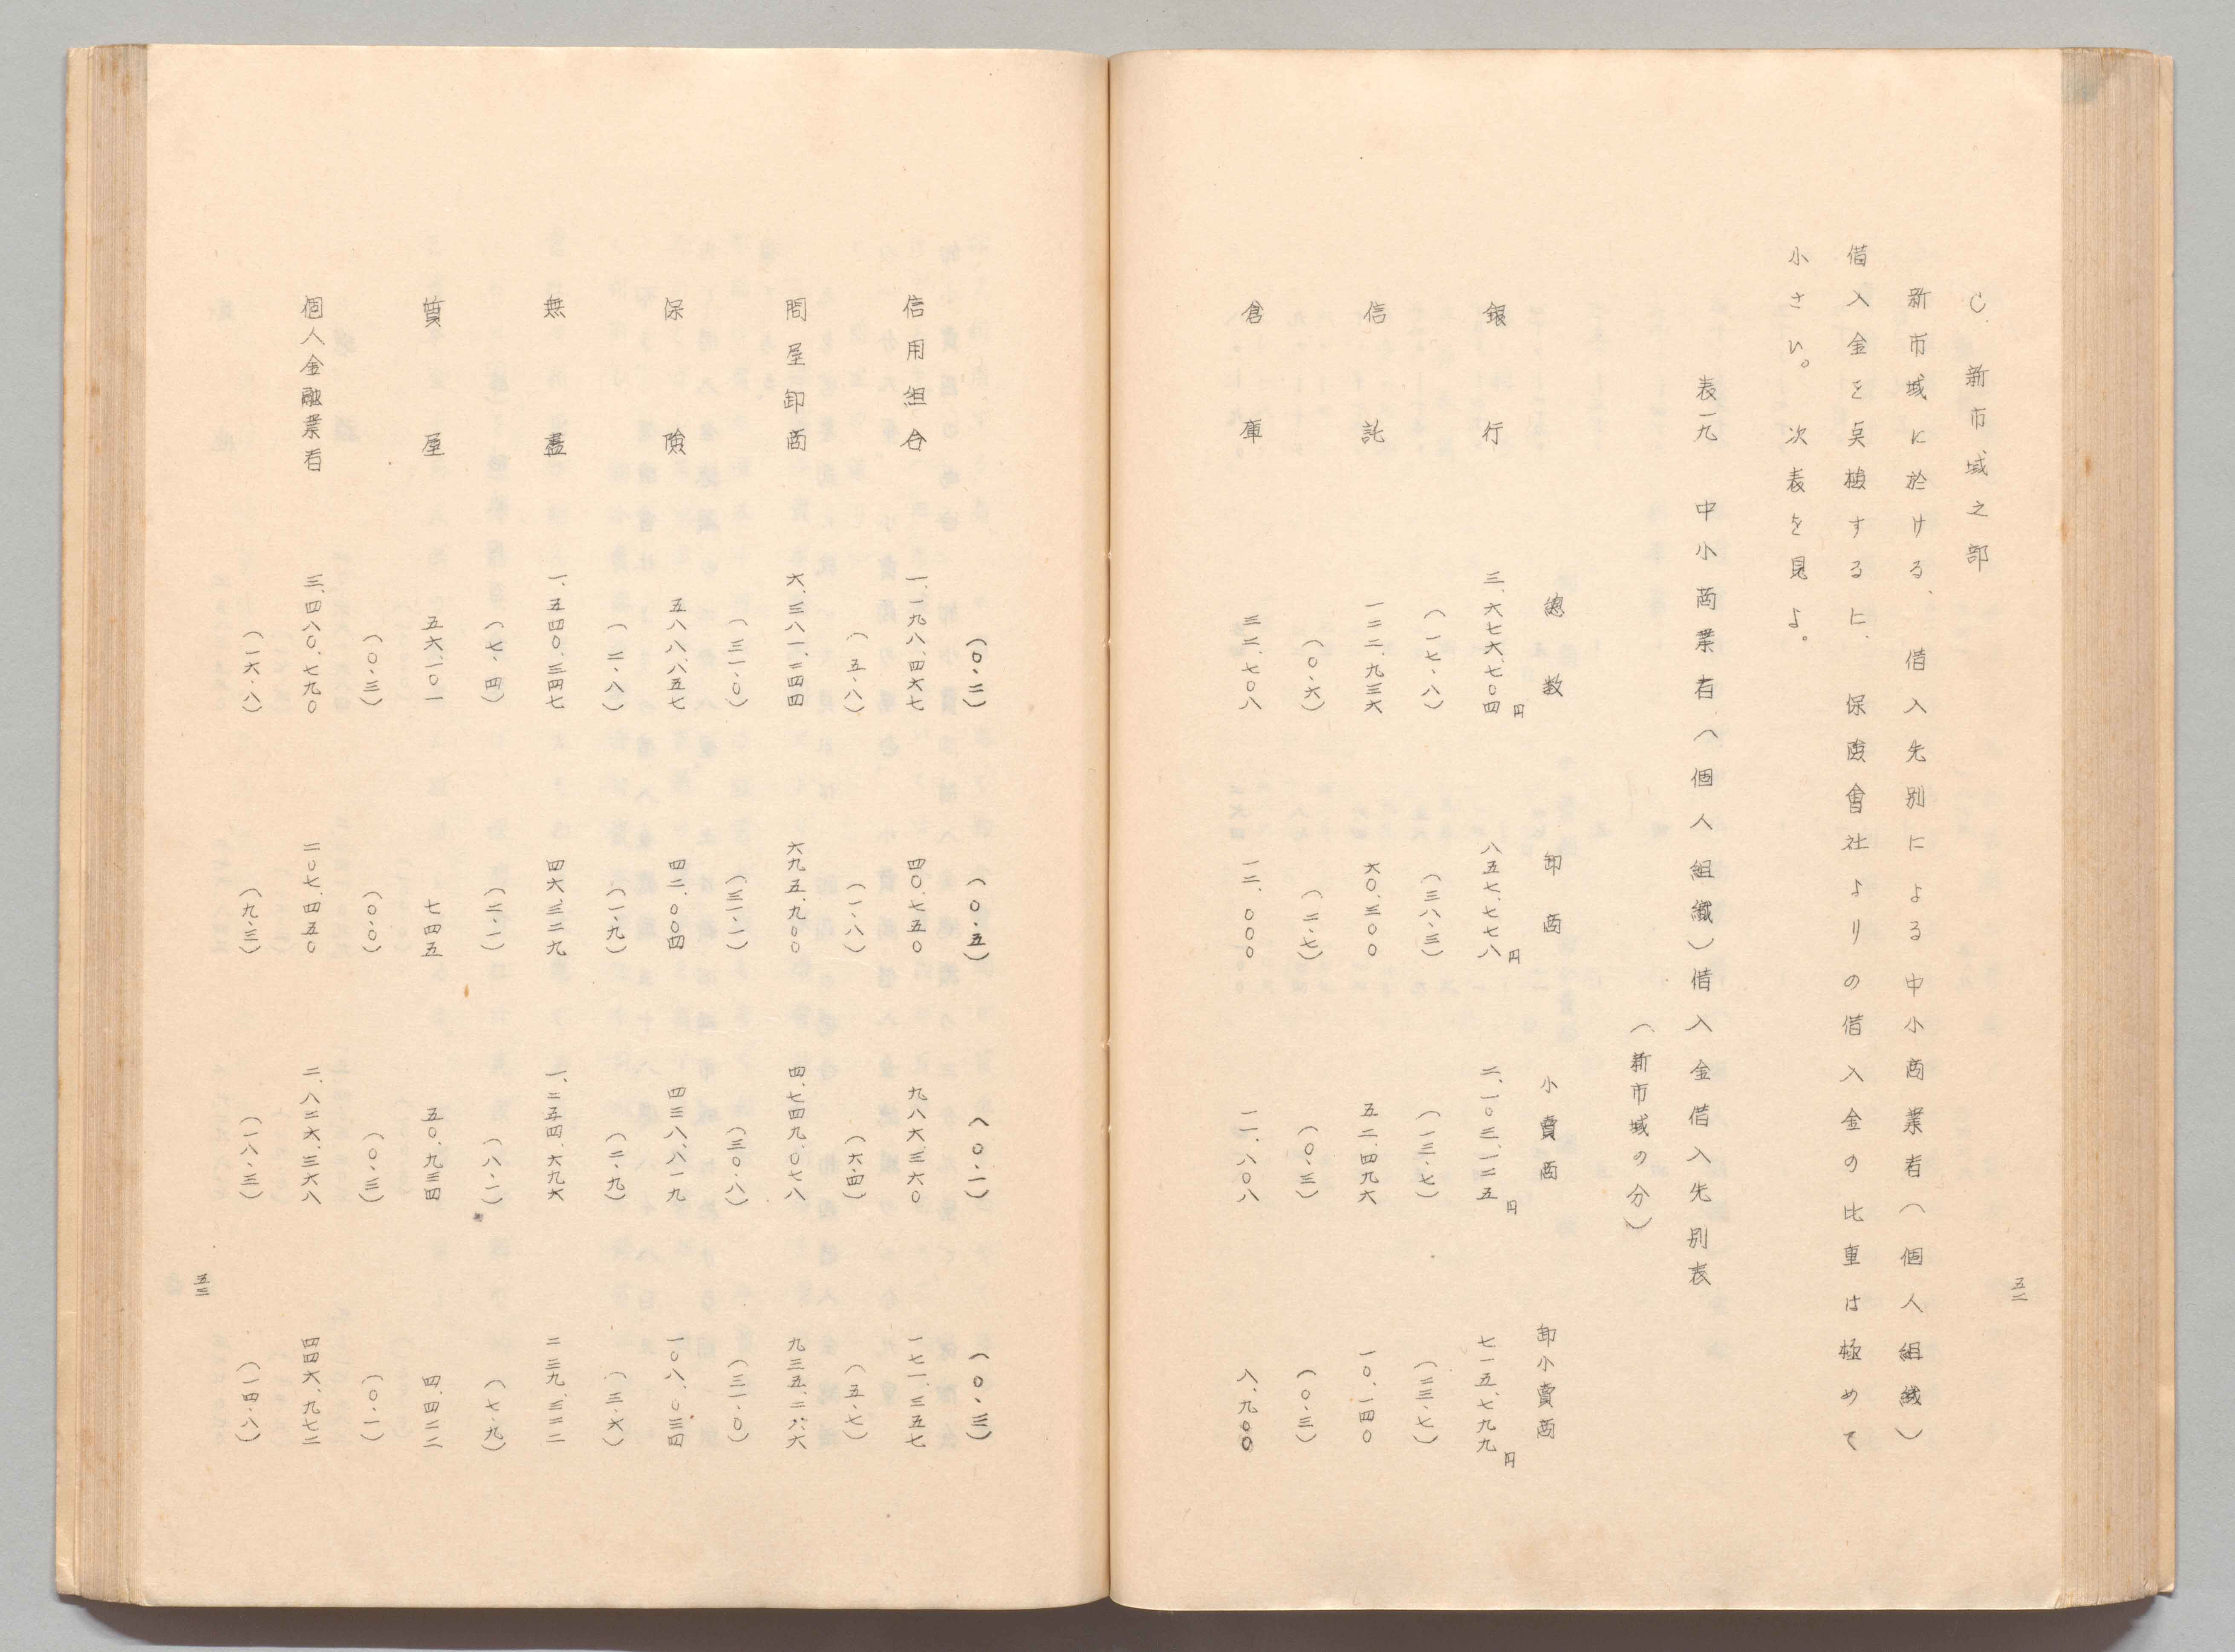 五二
C. 新市域之部
新市域に於ける、借入先別による中小商業者（個人組織）
借入金を点検するに、保険會社よりの借入金の比重は極めて
小さい。次表を見よ。
表一九 中小商業者（個人組織）借入金借入先別表
（新市域の分）
總数 卸商 小賣商 卸小賣商
銀行 三、六七六、七〇四円 八五七、七七八円 二、一〇三、一二五円 七一五、七九九円
（一七・八） （三八・三） （一三・七） （二三・七）
信託 一二二、九三六 六〇、三〇〇 五二、四九六 一〇、一四〇
（〇・六） （二・七） （〇・三） （〇・三）
倉庫 三二、七〇八 一二、〇〇〇 一一、八〇八 八、九〇〇
（〇・二） （〇・五） （〇・一） （〇・三）
信用組合 一、一九八、四六七 四〇、七五〇 九八六、三六〇 一七一、三五七
（五・八） （一・八） （六・四） （五・七）
問屋卸商 六、三八一、二四四 六九五、九〇〇 四、七四九、〇七八 九三五、二六六
（三一・〇） （三一・一） （三〇・八） （三一・〇）
保険 五八八、八五七 四二、〇〇四 四三八、八一九 一〇八、〇三四
（二・八） （一・九） （二・九） （三・六）
無盡 一、五四〇、三四七 四六、三二九 一、二五四、六九六 二三九、三二二
（七・四） （二・一） （八・一） （七・九）
質屋 五六、一〇一 七四五 五〇、九三四 四、四二二
（〇・三） （〇・〇） （〇・三） （〇・一）
個人金融業者 三、四八〇、七九〇 二〇七、四五〇 二、八二六、三六八 四四六、九七二
（一六・八） （九・三） （一八・三） （一四・八）
五三